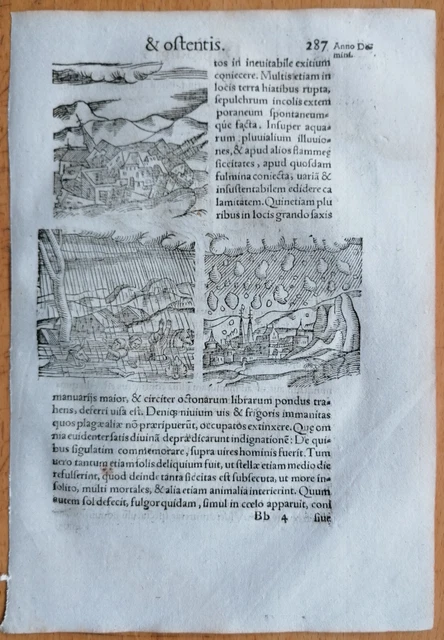 & ostentis. 287
Anno Do-
mini.
tos in ineuitabile exitium
coniecere. Multis etiam in
locis terra hiatibus rupta,
sepulchrum incolis extem
poraneum spontaneum-
que facta. Insuper aqua-
rum pluuialium illuuio-
nes, & apud alios flammeę
siccitates, apud quosdam
fulmina coniecta, uariã &
insustentabilem edidere ca
lamitatem. Quinetiam plu
ribus in locis grando saxis
manuarijs maior, & circiter octonarum librarum pondus tra-
hens, deferri uisa est. Deniq; niuium uis & frigoris immanitas
quos plagæ aliæ nõ præripuerũt, occupatos extinxere. Quę om
nia euidenter satis diuinã deprædicarunt indignationẽ: De qui-
bus sigulatim commemorare, supra uires hominis fuerit. Tum
uero tantum etiam solis deliquium fuit, ut stellæ etiam medio die
refulserint, quod deinde tanta siccitas est subsecuta, ut more in-
solito, multi mortales, & alia etiam animalia interierint. Quum
autem sol defecit, fulgor quidam, simul in cœlo apparuit, coni
Bb 4 siue